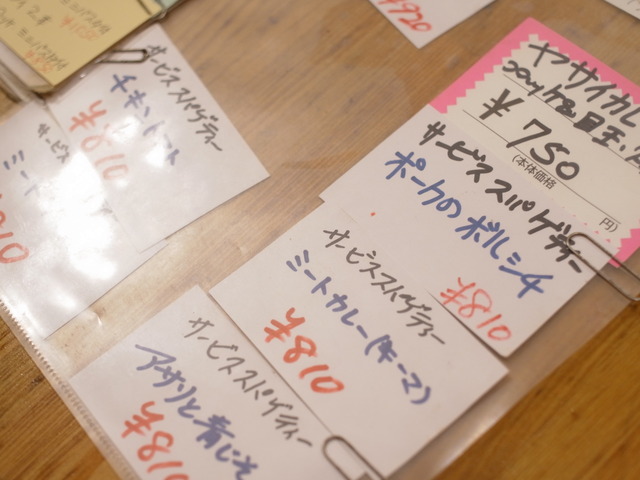 ¥920
ヤサイカレ
¥750
(本体価格
円)
サービススパゲティー
ポークのボルシチ
¥810
サービススパゲティー
ミートカレー(キーマ)
¥810
サービススパゲティー
アサリと青じそ
¥810
サービススパゲティー
チキン
¥810
サービス
ミート
810